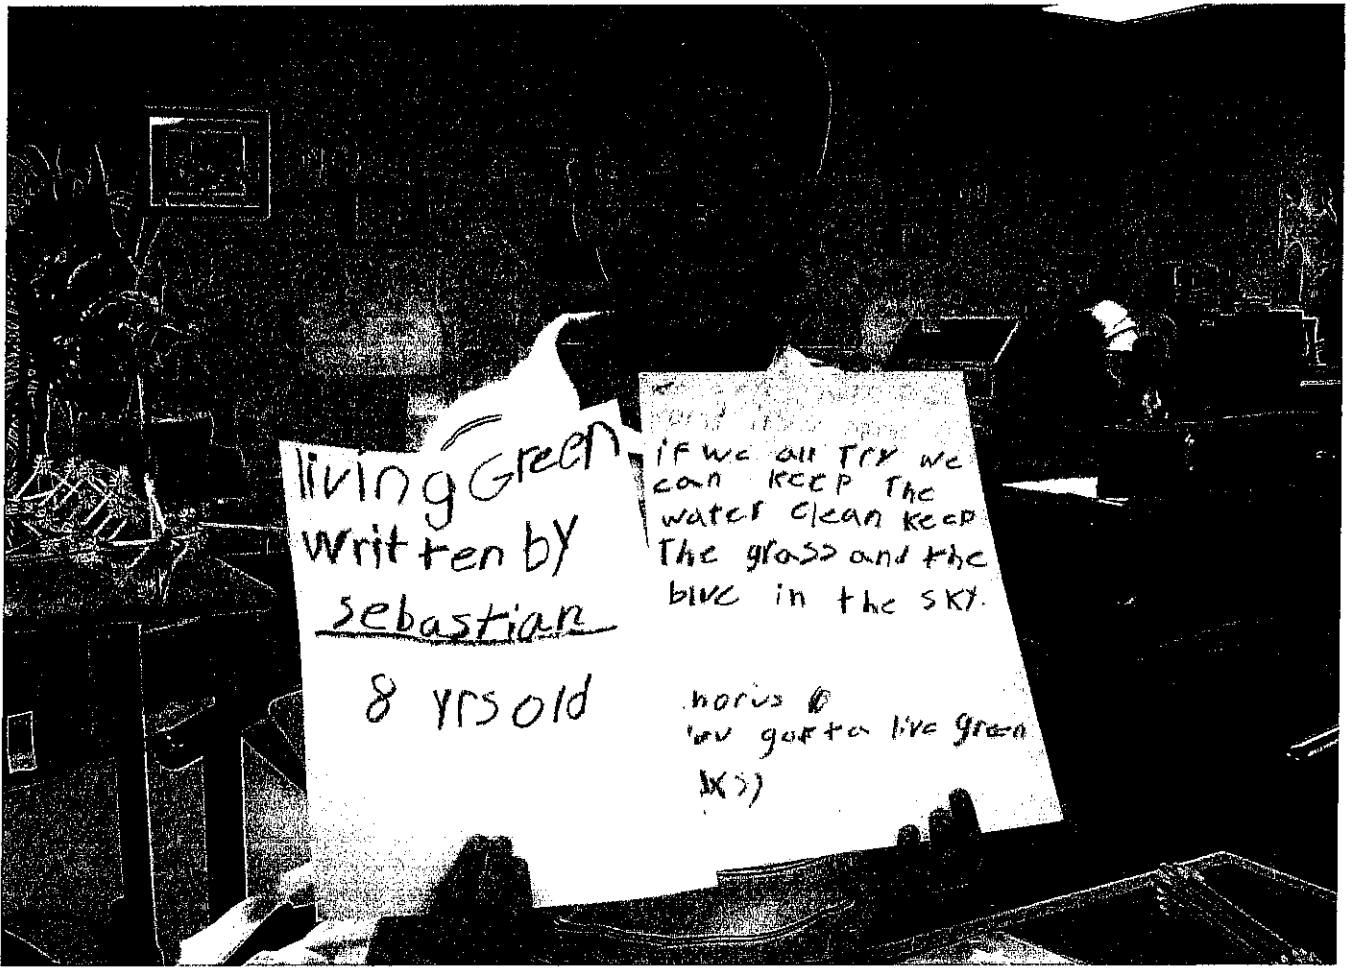 living Green
written by
sebastian
8 yrs old
if we all Try we
can keep The
water clean keep
The grass and the
blue in the sky.
gotta live green